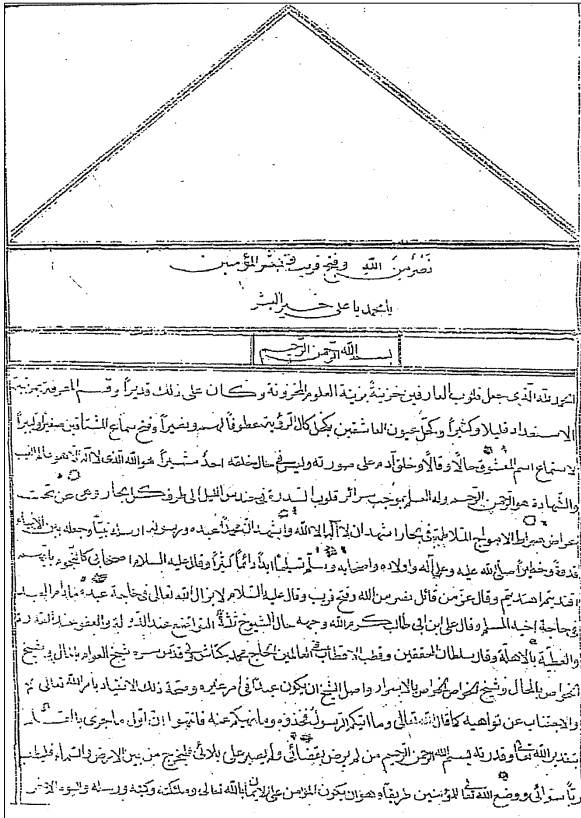 نصر من الله وفتح قريب وبشر المؤمنين
يا محمد يا علي خير البشر
بسم الله الرحمن الرحيم
الحمد لله الذي جعل قلوب العارفين خزينة بزينة العلوم المخزونة وكان على ذلك قديرا وقسم المعرفة بمزتبة
الاستعداد قليلا وكثيرا وبكحل عيون العاشقين بكحل كال الرؤية عطوفا لهم وبصيرا وفتح سماع المشتاقين صغيرا وكبيرا
لاستماع اسم المعشوق حالا وقالا وخلق آدم على صورته وليس في حال خلقه احد مشيرا هو الله الذي لا اله الا هو عالم الغيب
والشهادة هو الرحمن الرحيم وله العلم بموجب سرائر قلوب في حندس الليل الى طرف كل بحار عن تحت
امواج المتلاطمة في بحار اشهد ان لا اله الا الله واشهد ان محمدا عبده ورسوله ارسله نبيا وجعله بين الانبياء
قدوة وخطيرا صلى الله عليه وعلى آله واولاده واصحابه وسلم تسليما ابدا دائما كثيرا وقال عليه السلام اصحابي كالنجوم بايهم
اقتديتم اهتديتم وقال عز من قائل نصر من الله وفتح قريب وقال عليه السلام لا يزال الله تعالى في حاجة عبده ما دام العبد
في حاجة اخيه المسلم وقال علي ابن ابي طالب كرم الله وجهه حال الشيوخ التواضع عند الدولة والعفو عند القدرة
والعطية بلا منة وقال سلطان المحققين وقطب الاقطاب في العالمين الحاج محمد بكتاش ولي قدس سره شيخ العوام بالمال وشيخ
الخواص بالحال وشيخ خواص الخواص بالاسرار واصل الشيخ ان يكون عبدا في امر وصحة ذلك الانقياد بامر الله تعالى
والاجتناب عن نواهيه كما قال الله تعالى وما آتيكم الرسول فخذوه وما نهيكم عنه فانتهوا ان اقول ما جرى
بتقدير الله تعالى وقدرته بسم الله الرحمن الرحيم من لم يرض بقضائي ولم يصبر على بلائي فليخرج من بين الارض والسماء فليطلب
ربا سوائي ووضع الله تعالى للمؤمنين طريقا هو ان يكون المؤمن على الايمان بالله تعالى وملئكته وكتبه ورسله واليوم الآخر